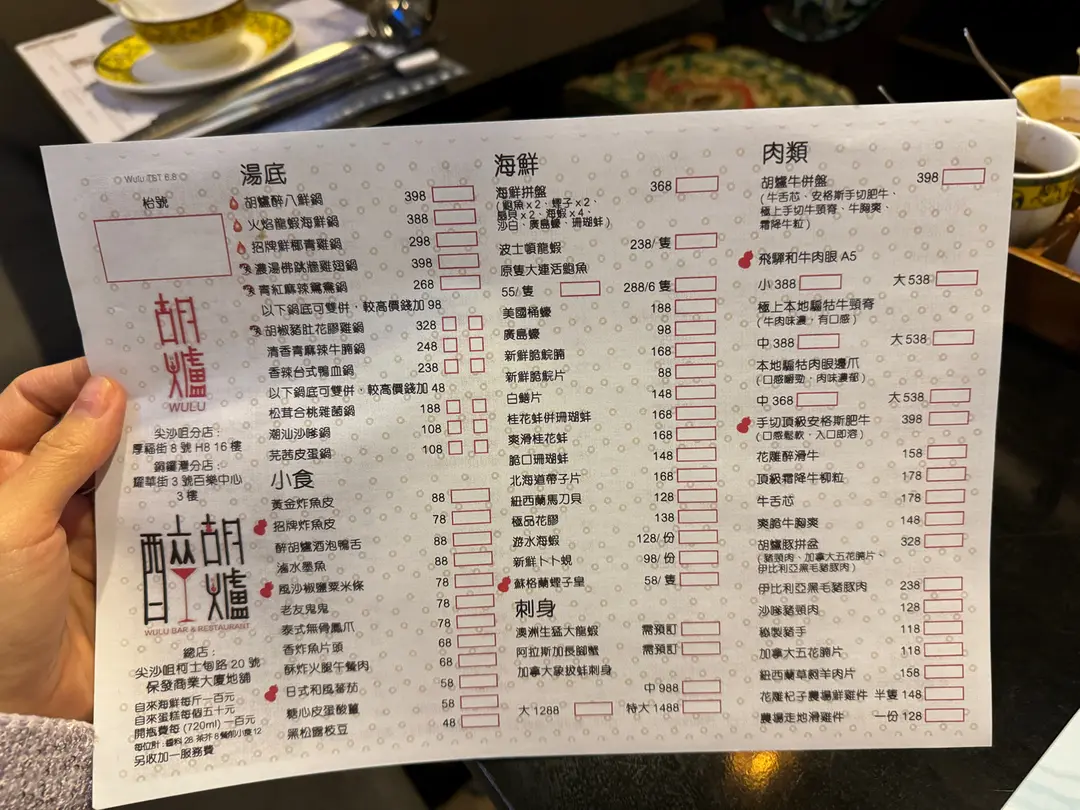 Wulu TST 6.8
枱號
胡爐
WULU
尖沙咀分店：
厚福街 8 號 H8 16 樓
銅鑼灣分店：
耀華街 3 號百樂中心
3 樓
醉胡爐
WULU BAR & RESTAURANT
總店：
尖沙咀柯士甸路 20 號
保發商業大廈地舖
自來海鮮每斤一百元
自來蛋糕每個五十元
開瓶費每 (720ml) 一百元
每位計：醬料 28 茶芥 8 餐前小食 12
另收加一服務費
湯底
胡爐醉八鮮鍋 398
火焰龍蝦海鮮鍋 388
招牌鮮椰青雞鍋 298
濃湯佛跳牆雞翅鍋 398
青紅麻辣鴛鴦鍋 268
以下鍋底可雙併，較高價錢加 98
胡椒豬肚花膠雞鍋 328
清香青麻辣牛腩鍋 248
香辣台式鴨血鍋 238
以下鍋底可雙併，較高價錢加 48
松茸合桃雜菌鍋 188
潮汕沙嗲鍋 108
芫茜皮蛋鍋 108
小食
黃金炸魚皮 88
招牌炸魚皮 78
醉胡爐酒泡鴨舌 88
滷水墨魚 88
風沙椒鹽粟米條 78
老友鬼鬼 78
泰式無骨鳳爪 78
香炸魚片頭 68
酥炸火腿午餐肉 68
日式和風蕃茄 58
糖心皮蛋酸薑 58
黑松露枝豆 48
海鮮
海鮮拼盤 368
（鮑魚 x 2、蟶子 x 2、
扇貝 x 2、海蝦 x 4、
沙白、廣島蠔、珊瑚蚌）
波士頓龍蝦 238/ 隻
原隻大連活鮑魚
55/ 隻 288/6 隻
美國桶蠔 188
廣島蠔 98
新鮮脆鯇腩 168
新鮮脆鯇片 88
白鱔片 148
桂花蚌併珊瑚蚌 168
爽滑桂花蚌 168
脆口珊瑚蚌 148
北海道帶子片 168
紐西蘭馬刀貝 128
極品花膠 138
游水海蝦 128/ 份
新鮮卜卜蜆 98/ 份
蘇格蘭蟶子皇 58/ 隻
刺身
澳洲生猛大龍蝦 需預訂
阿拉斯加長腳蟹 需預訂
加拿大象拔蚌刺身
中 988
大 1288 特大 1488
肉類
胡爐牛併盤 398
（牛舌芯、安格斯手切肥牛、
極上手切牛頸脊、牛胸爽、
霜降牛粒）
飛驒和牛肉眼 A5
小 388 大 538
極上本地騸牯牛頸脊
（牛肉味濃，有口感）
中 388 大 538
本地騸牯肉眼邊爪
（口感嚼勁，肉味濃郁）
中 368 大 538
手切頂級安格斯肥牛 398
（口感鬆軟，入口即溶）
花雕醉滑牛 158
頂級霜降牛柳粒 178
牛舌芯 178
爽脆牛胸爽 148
胡爐豚拼盆 328
（豬頸肉、加拿大五花腩片、
伊比利亞黑毛豬豚肉）
伊比利亞黑毛豬豚肉 238
沙嗲豬頸肉 128
秘製豬手 118
加拿大五花腩片 118
紐西蘭草飼羊肉片 158
花雕杞子農場鮮雞件 半隻 148
農場走地滑雞件 一份 128